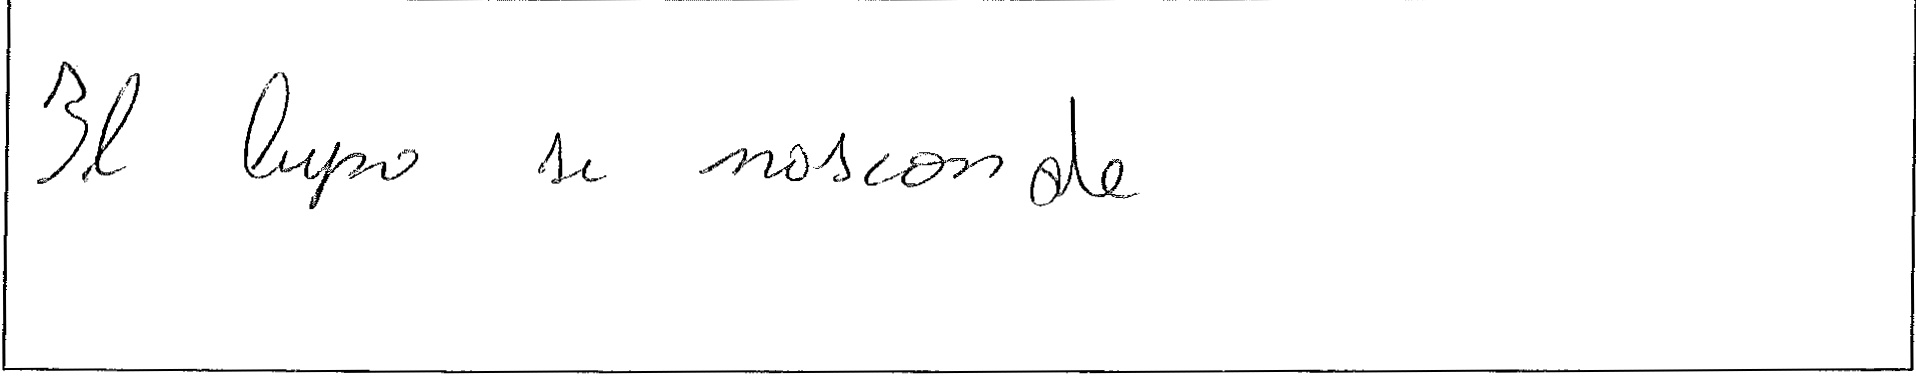 Il lupo si nosconde